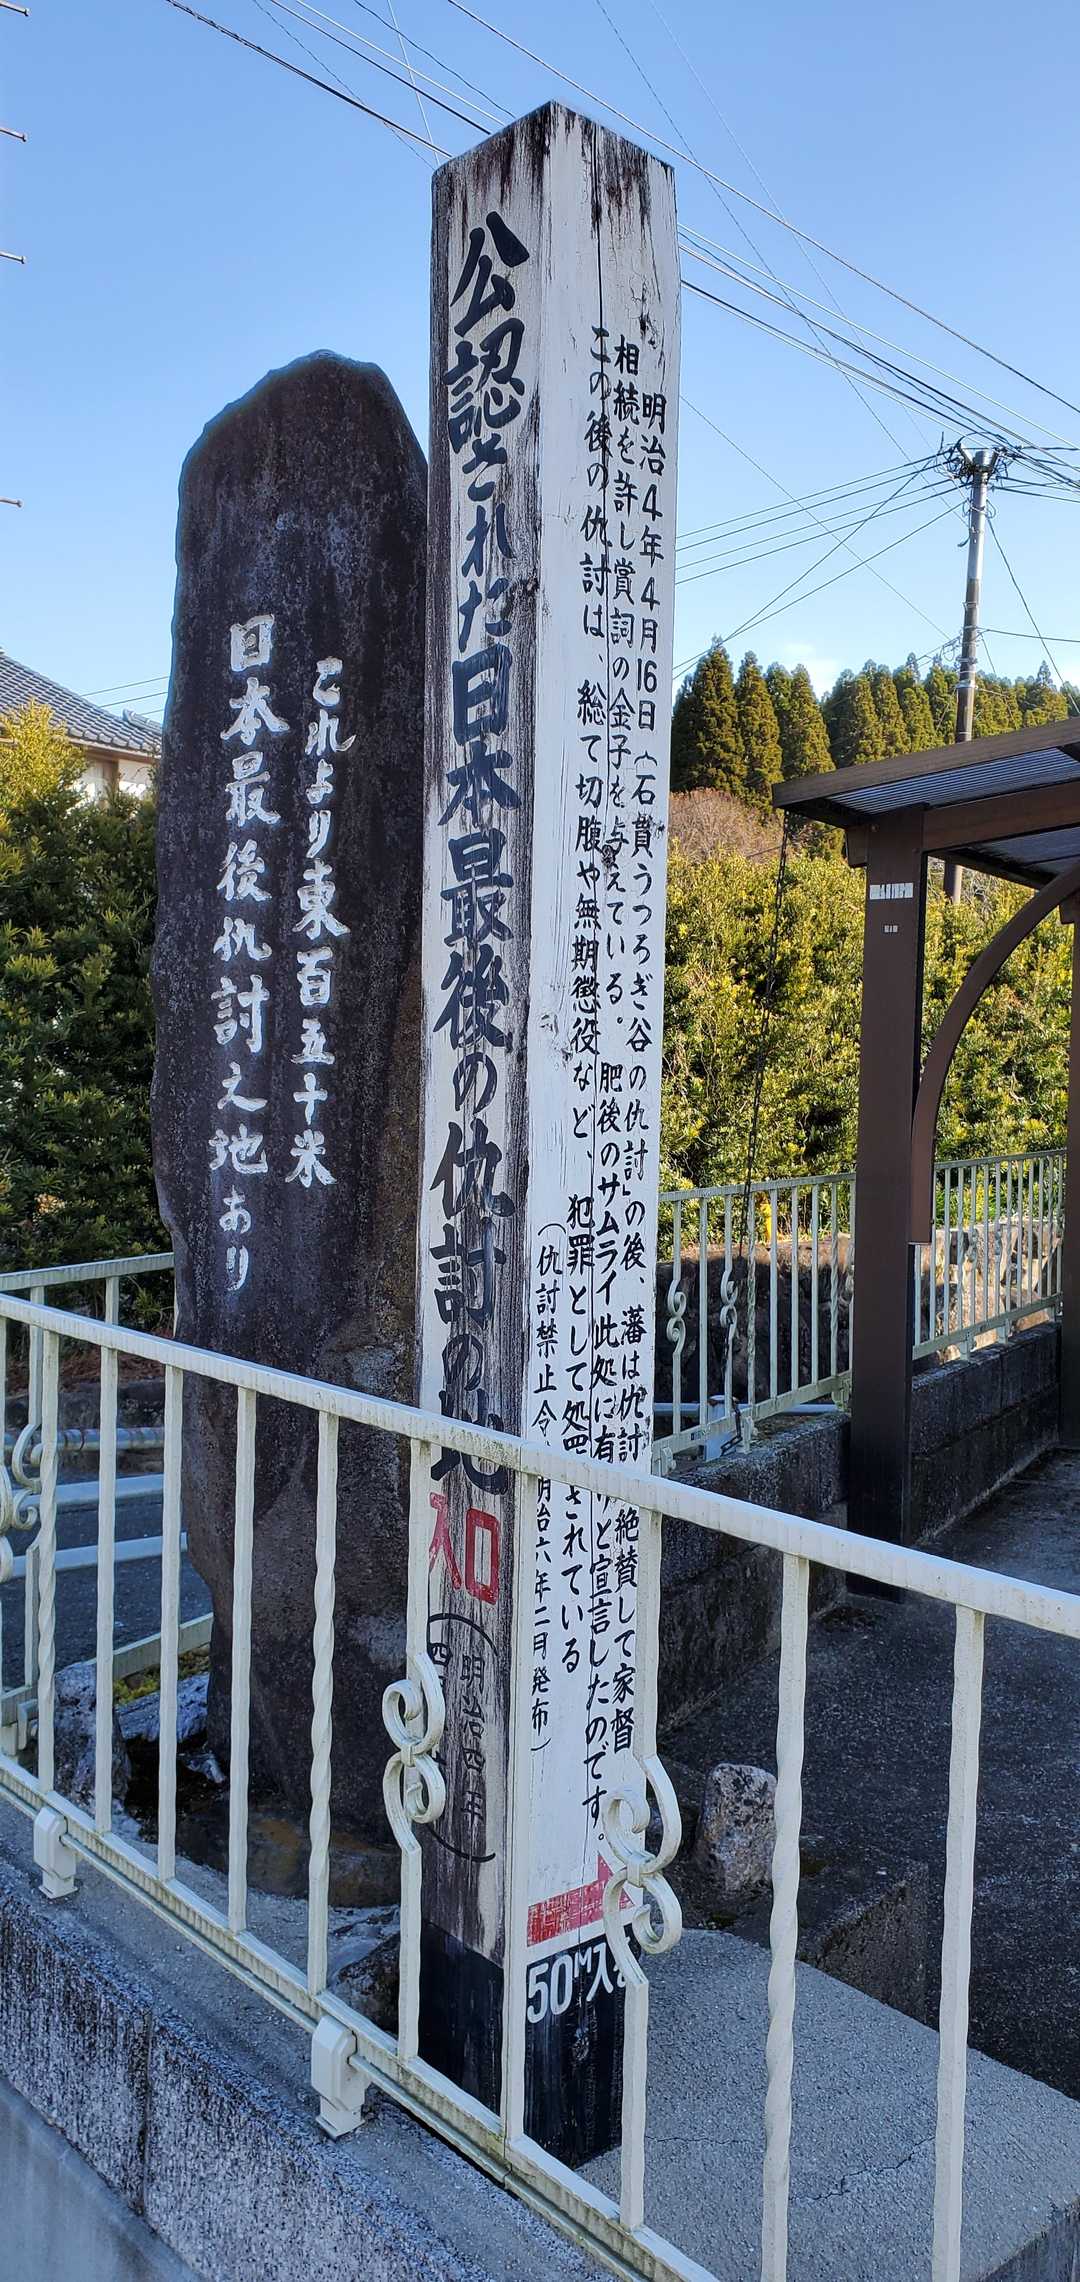 これより東百五十米
日本最後仇討之地あり
公認された日本最後の仇討の地
入口
(明治四年
四
明治4年4月16日「石貫うつろぎ谷の仇討」の後、藩は仇討 絶賛して家督
相続を許し賞詞の金子を与えている。 肥後のサムライ此処に有りと宣言したのです。
この後の仇討は、総て切腹や無期懲役など、犯罪として処罰されている
(仇討禁止令 明治六年二月発布)
50M入る